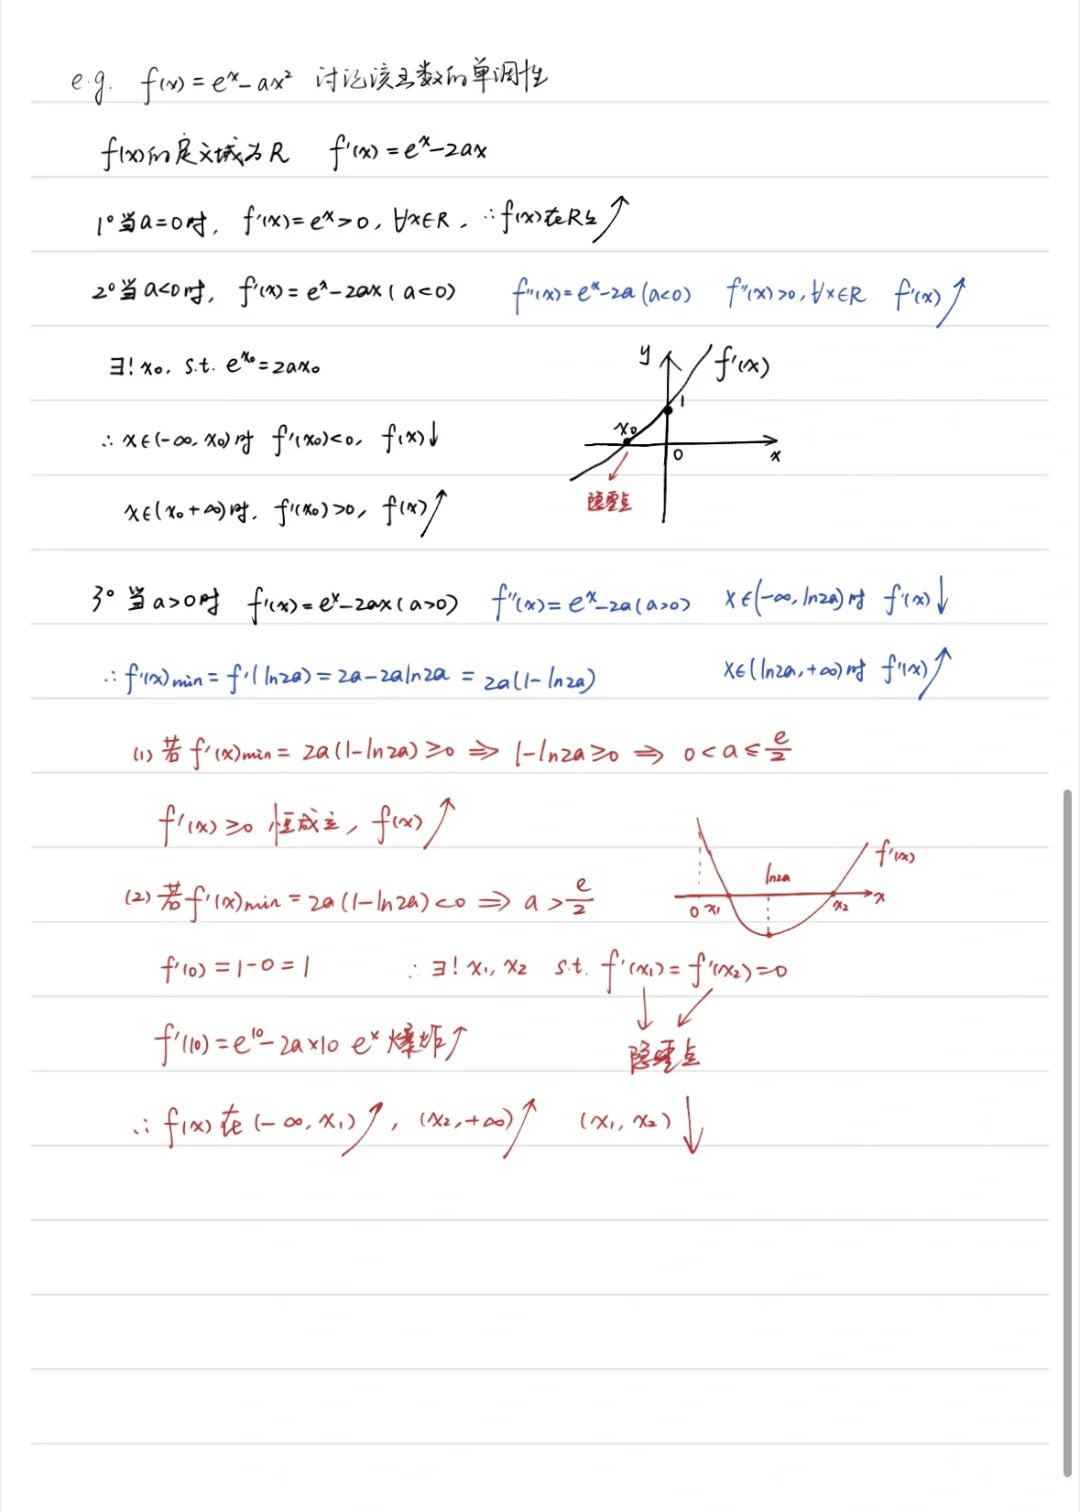 e.g. f(x)=eˣ-ax² 讨论该函数的单调性
f(x)的定义域为R f'(x)=eˣ-2ax
1°当a=0时, f'(x)=eˣ>0, ∀x∈R, ∴f(x)在R上↗
2°当a<0时, f'(x)=eˣ-2ax(a<0) f''(x)=eˣ-2a(a<0) f''(x)>0,∀x∈R f'(x)↗
∃! x₀, s.t. e^{x₀}=2ax₀
y f'(x)
1
x₀
0 x
隐零点
∴ x∈(-∞, x₀)时 f'(x₀)<0, f(x)↓
x∈(x₀+∞)时, f'(x₀)>0, f(x)↗
3° 当a>0时 f'(x)=eˣ-2ax(a>0) f''(x)=eˣ-2a(a>0) x∈(-∞,ln2a)时 f'(x)↓
∴f'(x)min=f'(ln2a)=2a-2aln2a=2a(1-ln2a) x∈(ln2a,+∞)时 f'(x)↗
(1)若f'(x)min=2a(1-ln2a)≥0⇒1-ln2a≥0⇒0<a≤e/2
f'(x)≥0 恒成立, f(x)↗
f'(x)
ln2a
0 x₁ x₂ x
(2)若f'(x)min=2a(1-ln2a)<0⇒a>e/2
f'(0)=1-0=1 ∴∃! x₁, x₂ s.t. f'(x₁)=f'(x₂)=0
f'(10)=e¹⁰-2a×10 eˣ爆炸↗ 隐零点
∴f(x)在(-∞, x₁)↗, (x₂,+∞)↗ (x₁, x₂)↓